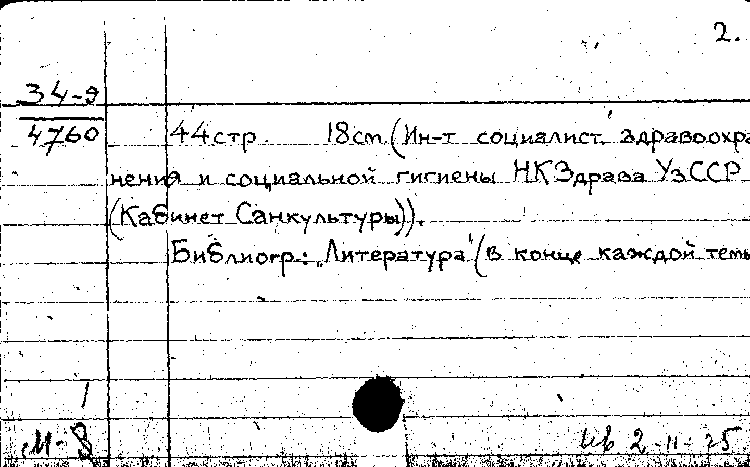 2.
34-9
4760
44стр. 18см. (Ин-т социалист. здравоохра
нения и социальной гигиены НКЗдрава УзССР
(Кабинет Санкультуры)).
Библиогр.: „Литература" (в конце каждой темы
1
М-8
2-II-35